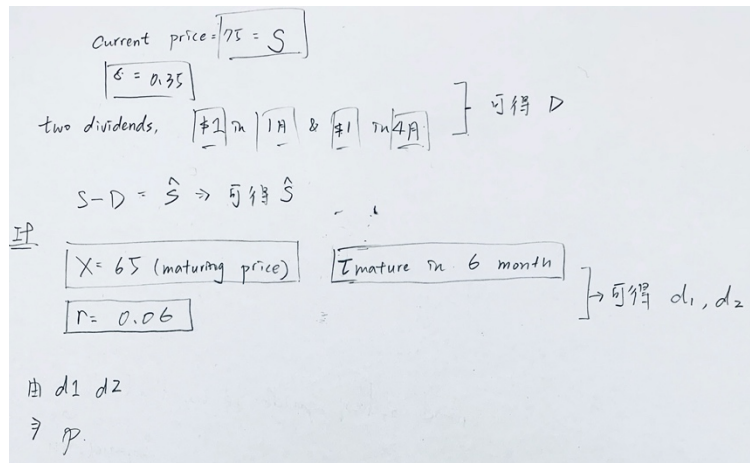 Current price = 75 = S
σ = 0.35
two dividends, $1 in 1月 & $1 in 4月 可得 D
S-D = Ŝ ⇒ 可得 Ŝ
X = 65 (maturing price) τ mature in 6 month
r = 0.06 → 可得 d₁, d₂
由 d1 d2
⇒ p.